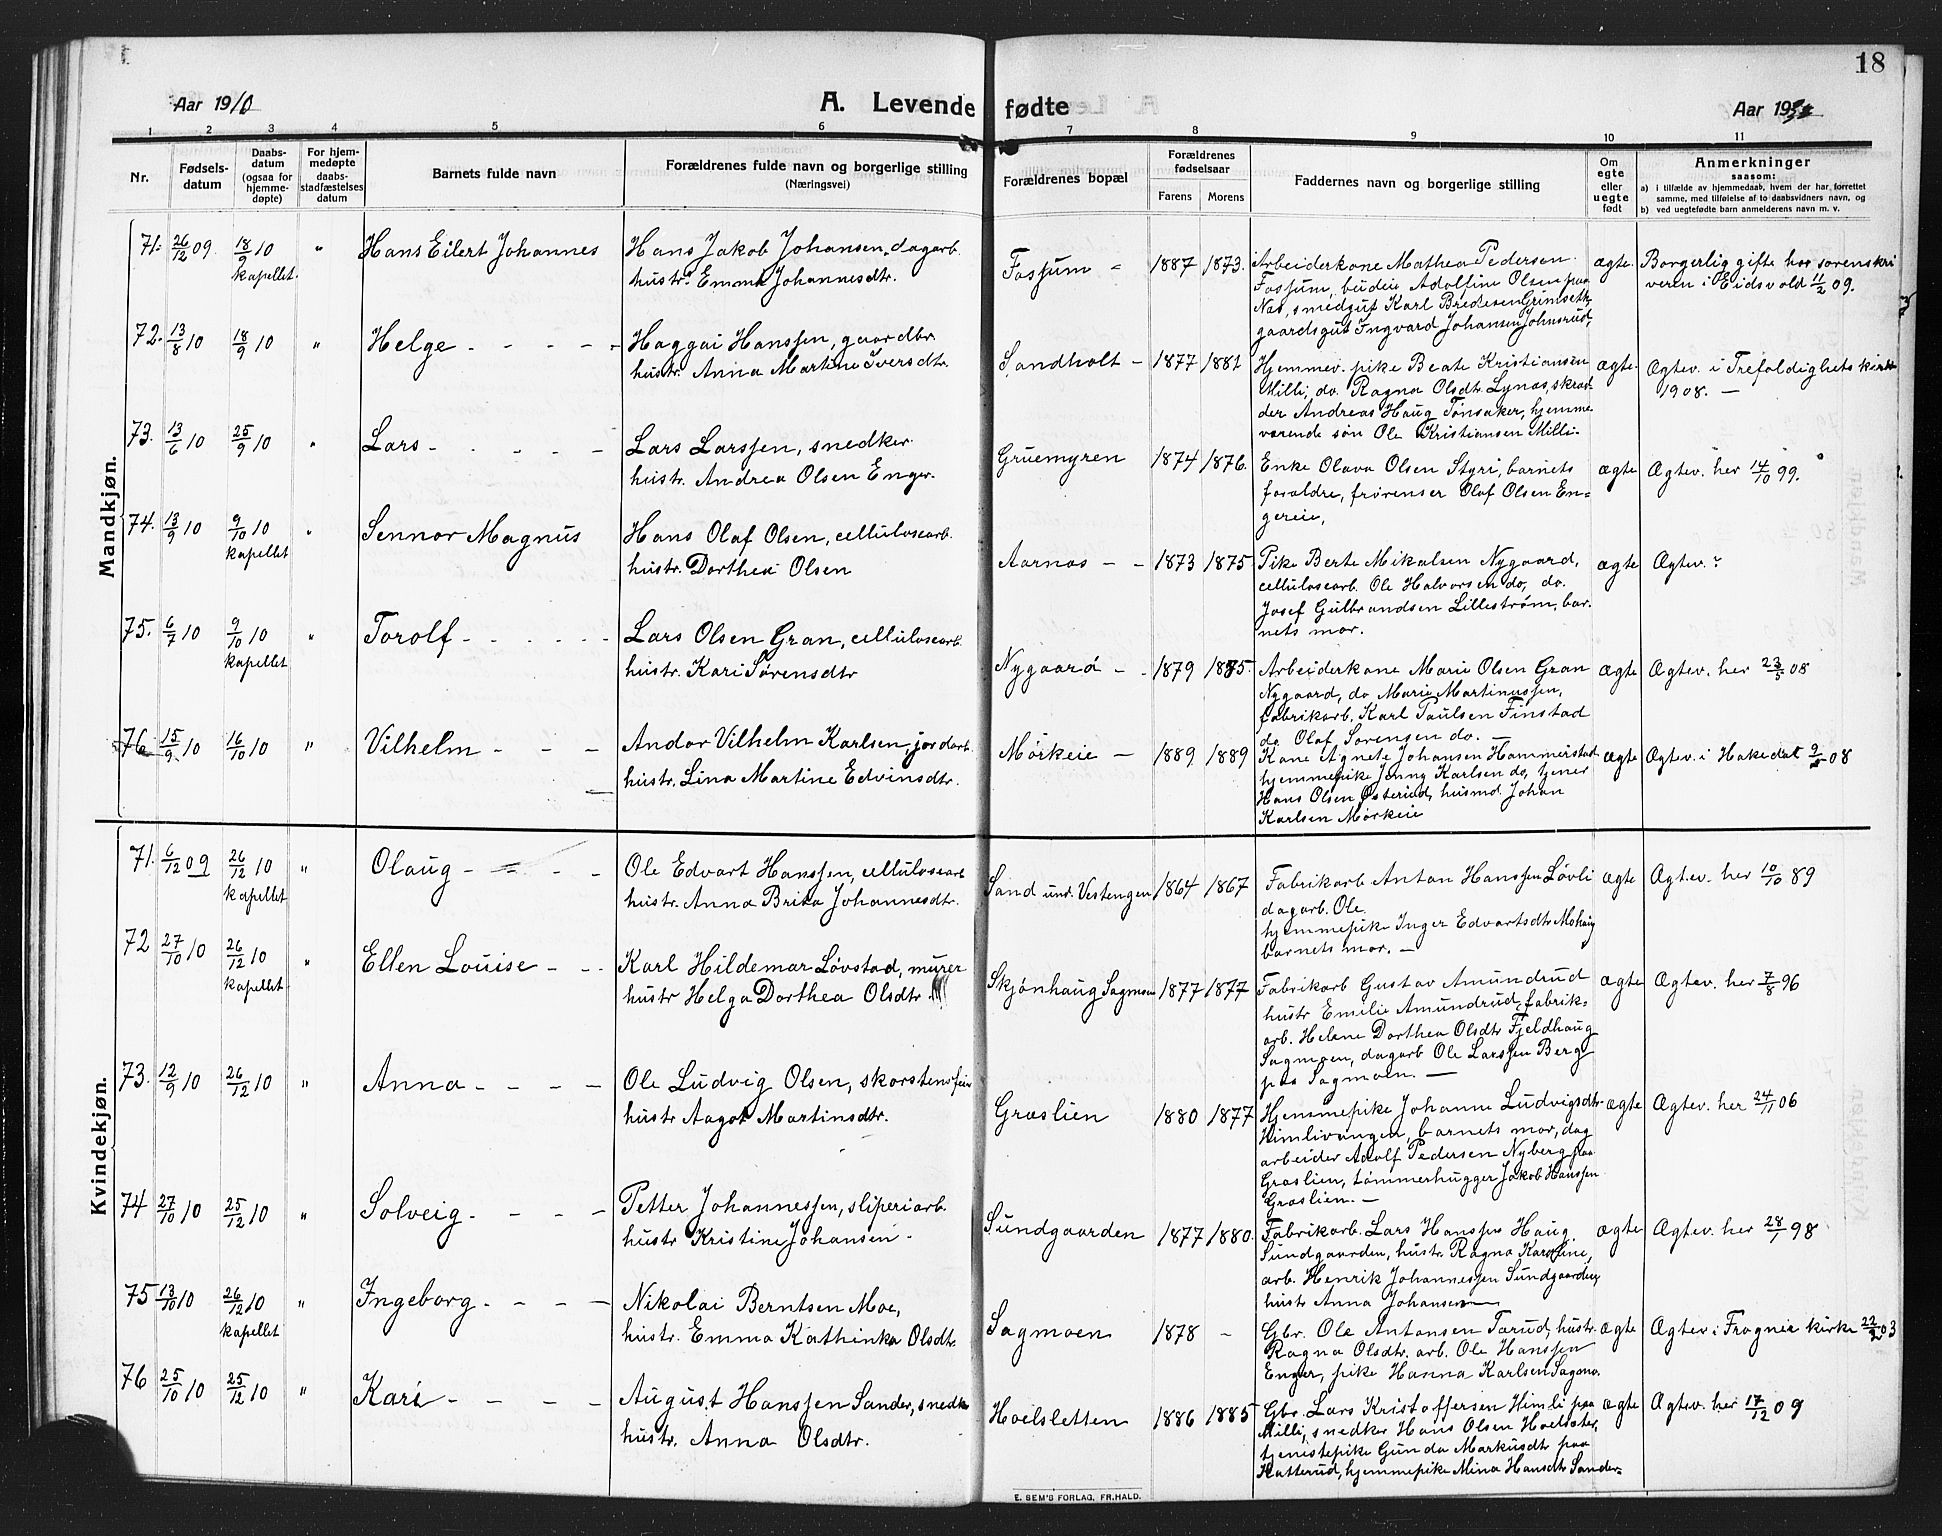 18
Aar 1910
A. Levende fødte
Aar 19
1 2 3 4 5 6 7 8 9 10 11
Nr.
Fødsels-
datum
Daabs-
datum
(ogsaa for
hjemme-
døpte)
For hjem-
medøpte
daabs-
stadfæstelses
datum
Barnets fulde navn
Forældrenes fulde navn og borgerlige stilling
(Næringsvei)
Forældrenes bopæl
Forældrenes
fødselsaar
Farens Morens
Faddernes navn og borgerlige stilling
Om
egte
eller
uegte
født
Anmerkninger
saasom:
a) i tilfælde av hjemmedaab, hvem der har forrettet
samme, med tilføielse af to daabsvidners navn, og
b) ved uegtefødte barn anmelderens navn m. v.
Mandkjøn.
71. 26/12 09 18/9 10 " Hans Eilert Johannes
kapellet.
Hans Jakob Johansen, dagarb.
hustr. Emma Johannesdtr.
Fossum - 1887 1873.
Arbeiderkone Mathea Pedersen
Fossum, budeie Adolfine Olsen paa
Næs, smedgut Karl Bredesen Grimseth,
gaardsgut Ingvard Johansen Johnsrud,
ægte.
Borgerlig gifte hos sorenskri
veren i Eidsvold 11/2 09.
72. 13/8 10 18/9 10 " Helge - - - -
Haggai Hanssen, gaardbr.
hustr. Anna Martine Iversdtr.
Sandholt - 1877 1881
Hjemmev. pike Beate Kristiansen
Milli, do. Ragna Olsdtr. Lynæs, skræd
der Andreas Haug Tønsaker, hjemme
værende søn Ole Kristiansen Milli.
ægte.
Ægtev. i Trefoldighetskirke
1908. -
73. 13/6 10 25/9 10 " Lars - - - - -
Lars Larssen, snedker
hustr. Andrea Olsen Enger.
Gruemyren 1874 1876.
Enke Olava Olsen Styri, barnets
forældre, frørenser Olaf Olsen En=
gereie,
ægte
Ægtev. her 14/10 99.
74. 13/9 10 9/10 10 " Sennor Magnus
kapellet
Hans Olaf Olsen, cellulosearb.
hustr. Dorthea Olsen
Aarnæs - - 1873 1875
Pike Berte Mikalsen Nygaard,
cellulosearb. Ole Halvorsen do, do.
Josef Gulbrandsen Lillestrøm, bar.
nets mor.
ægte
Ægtev. ?
75. 6/7 10 9/10 10 " Torolf - - - - -
kapellet
Lars Olsen Gran, cellulosearb.
hustr. Kari Sørensdtr
Nygaard - - 1879 1875.
Arbeiderkone Marie Olsen Gran
Nygaard, do Marie Martinussen,
fabrikarb. Karl Paulsen Finstad
do Olaf Sørensen do. -
ægte
Ægtev. her 23/5 08
76 15/9 10 16/10 10 " Vilhelm - - -
Andor Vilhelm Karlsen, jordarb
hustr. Lina Martine Edvinsdtr.
Mørkeie - 1889 1889
Kone Agnete Johansen Hammerstad
hjemmepike Jenny Karlsen do, tjener
Hans Olsen Østerud, husmd. Johan
Karlsen Mørkeie
ægte
Ægtev. i Hakedal 9/ 08
Kvindekjøn.
71. 6/12 09 26/12 10 " Olaug - = - -
kapellet
Ole Edvart Hanssen, cellulosearb
hustr. Anna Brita Johannesdtr.
Sand und. Vestengen 1864 1867
Fabrikarb Anton Hanssen Løvli
dagarb. Ole
hjemmepike Inger Edvartsdtr Mohaug
barnets mor. -
ægte
Ægtev. her 10/10 89
72 27/10 10 26/12 10 " Ellen Louise - - -
kapellet
Karl Hildemar Løvstad, murer
hustr Helga Dorthea Olsdtr.
Skjønhaug Sagmoen 1877 1877
Fabrikarb Gustav Amundrud
hustr Emilie Amundrud, fabrik=
arb. Helene Dorthea Olsdtr Fjeldhaug
Sagmoen, dagarb Ole Larssen Berg
paa Sagmoen. -
ægte
Ægtev. her 7/8 96
73. 12/9 10 26/12 10 " Anna - - - -
Ole Ludvig Olsen, skorstensfeier
hustr Aagot Martinsdtr.
Græslien 1880 1877
Hjemmepike Johanne Ludvigsdtr
Himlivangen, barnets mor, dag
arbeider Adolf Pedersen Nyberg paa
Græslien, tømmerhugger Jakob Hanssen
Græslien. -
ægte
Ægtev. her 24/11 06
74 27/10 10 25/12 10 " Solveig - - - -
Petter Johannessen, sliperiarb.
hustr Kristine Johansen -
Sundgaarden 1877 1880.
Fabrikarb. Lars Hanssen Haug
Sundgaarden, hustr. Ragna Karoline,
arb. Henrik Johannessen Sundgaarden
hustr Anna Johansen
ægte
Ægtev. her 28/1 98
75 13/10 10 26/12 10 " Ingeborg - - - -
kapellet
Nikolai Berntsen Moe,
hustr. Emma Kathinka Olsdtr.
Sagmoen 1878 -
Gbr. Ole Antonsen Tarud, hustr
Ragna Olsdtr. arb. Ole Hanssen
Enger, pike Hanna Karlsen Sagmo.
ægte
Ægtev i Frogner kirke 22/ 03
76 25/10 10 25/12 10 " Kari - - - -
August Hanssen Sander, snedk
hustr. Anna Olsdtr.
Hoelsletten 1886 1885
Gbr. Lars Kristoffersen Himli paa
Milli, snedker Hans Olsen
tjenestepike Gunda Markusdtr paa
Katterud, hjemmepike Mina Hansdtr Sander=
ægte
Ægtev. her 17/12 09
E. SEM'S FORLAG, FR.HALD.